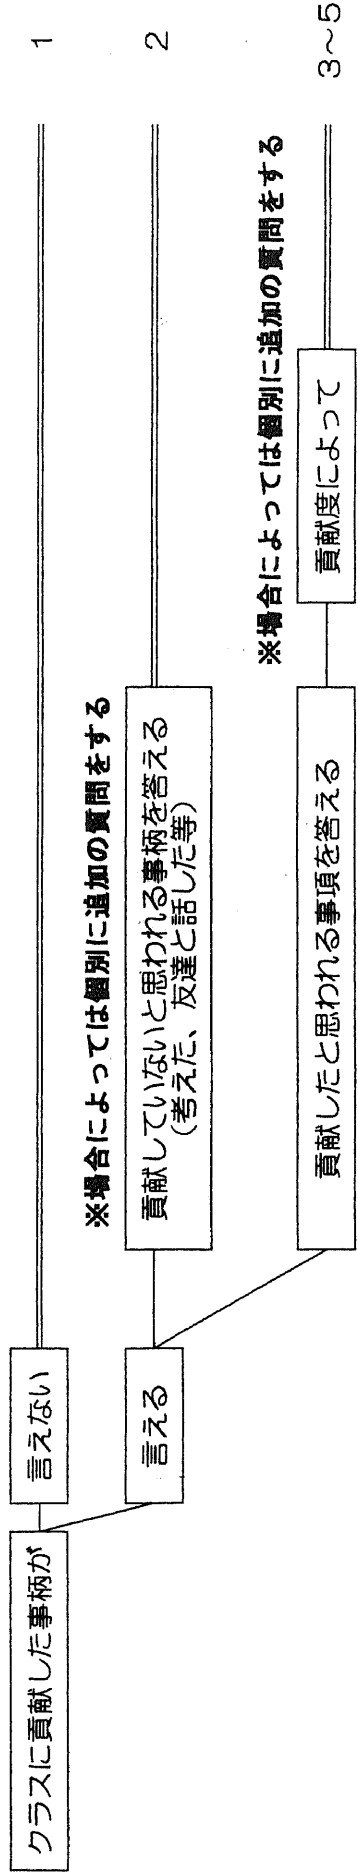 クラスに貢献した事柄が
言えない
1
※場合によっては個別に追加の質問をする
言える
貢献していないと思われる事柄を答える
(考えた、友達と話した等)
2
※場合によっては個別に追加の質問をする
貢献したと思われる事項を答える
貢献度によって
3～5